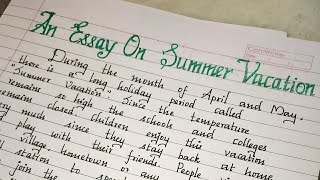 An Essay On Summer Vacation
During the month of April and May,
there is a long holiday period called
"Summer Vacation". Since the temperature
remains so high the schools and colleges
remains closed. Children enjoy this vacation
very much since they stay back at home
play with their friends. People
village, hometown or any
station to
join the